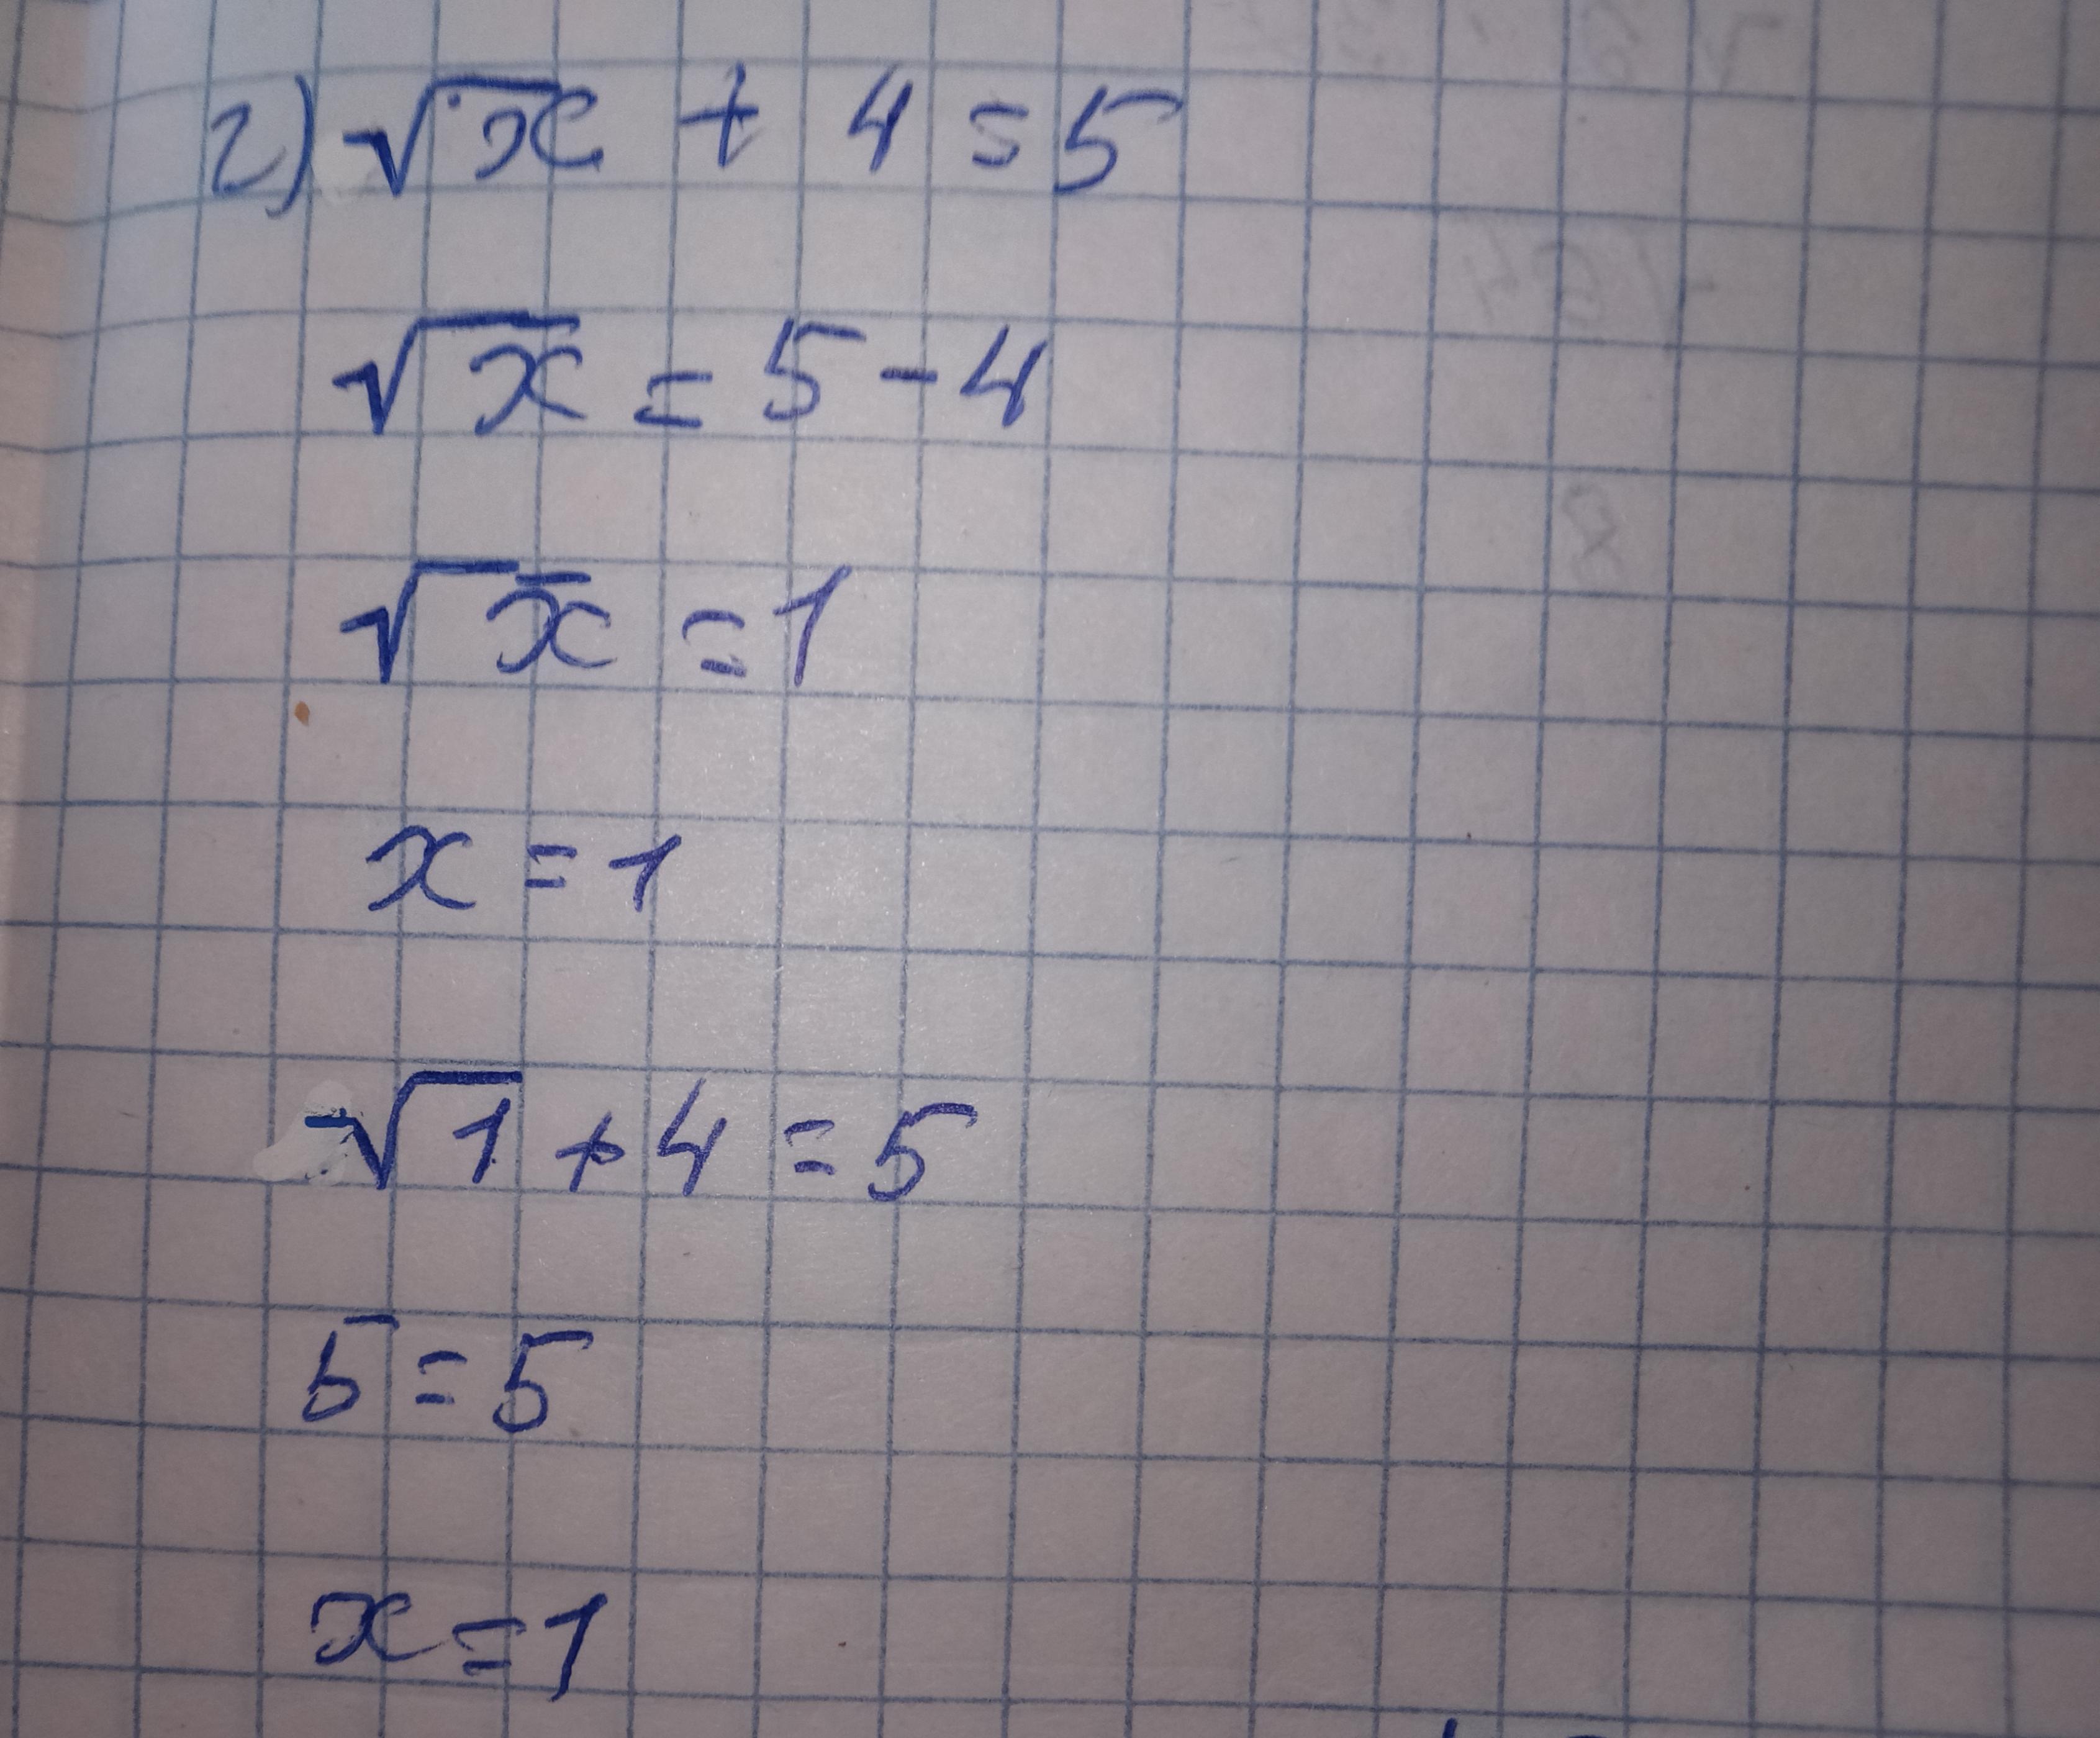 г) √x + 4 = 5
√x = 5 - 4
√x = 1
x = 1
√1 + 4 = 5
5 = 5
x = 1